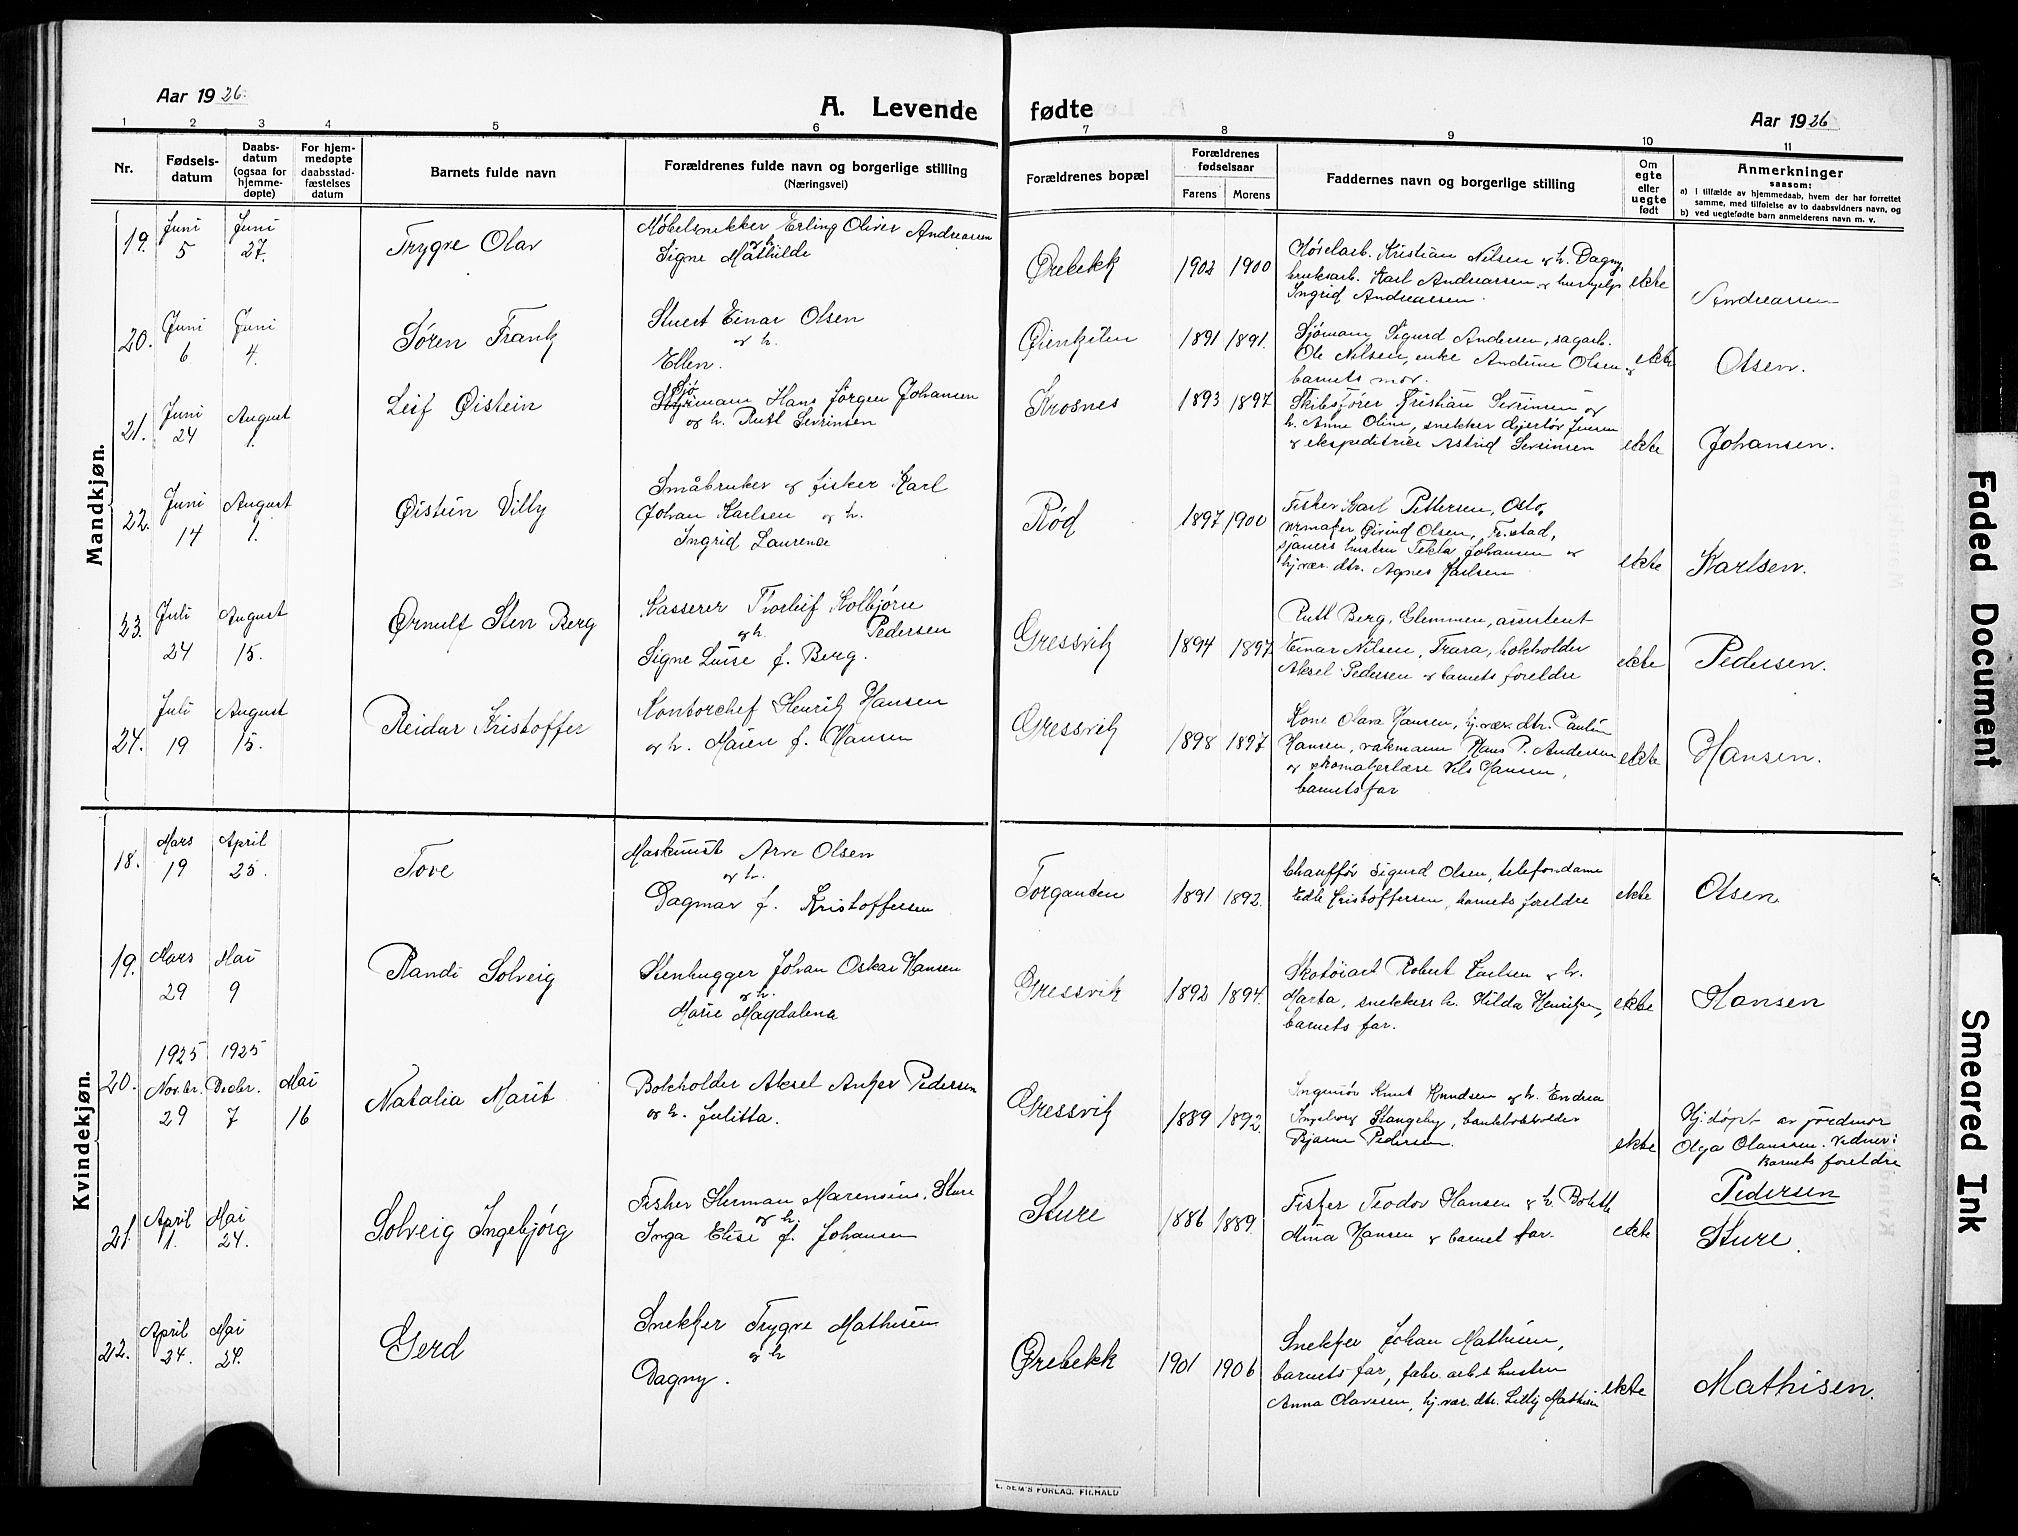 Aar 1926.
A. Levende fødte
Aar 1926
1 2 3 4 5 6 7 8 9 10 11
Nr.
Fødsels-
datum
Daabs-
datum
(ogsaa for
hjemme-
døpte)
For hjem-
medøpte
daabsstad-
fæstelses
datum
Barnets fulde navn
Forældrenes fulde navn og borgerlige stilling
(Næringsvei)
Forældrenes bopæl
Forældrenes
fødselsaar
Farens Morens
Faddernes navn og borgerlige stilling
Om
egte
eller
uegte
født
Anmerkninger
saasom:
a) i tilfælde av hjemmedaab, hvem der har forrettet
samme, med tilføielse av to daabsvidners navn, og
b) ved uegtefødte barn anmelderens navn m. v.
Mandkjøn.
19.
Juni
5
Juni
27.
Trygve Olav
Møbelsnekker Erling Oliver Andreassen
og h.
Signe Mathilde
Ørebekk
1902 1900
Høvelarb. Kristian Nilsen og h. Dagny,
bruksarb. Karl Andreassen og hushjelp
Ingrid Andreassen.
ekte
Andreassen
20.
Juni
6
Juni
4.
Søren Frank
Stuert Einar Olsen
og h.
Ellen.
Øienkilen
1891 1891.
Sjømann Sigurd Andersen, sagarb.
Ole Nilsen, enke Andrine Olsen og
barnets mor.
ekte
Olsen.
21.
Juni
24
August
1.
Leif Øistein
Sjømann Hans Jørgen Johansen
og h. Rutl Sevrinsen
Krosnes
1893 1897
Skibsfører Kristian Sevrinsen og
h. Anne Oline, snekker Hjertør Jensen
og ekspeditrice Astrid Sevrinsen
ekte
Johansen.
22.
Juni
14
August
1.
Øistein Villy
Småbruker og fisker Karl
Johan Karlsen og h.
Ingrid Laurence
Rød
1897 1900
Fisker Karl Pettersen, Oslo,
urmaker Øivind Olsen, Fr.stad,
sjauers hustru Tekla Johansen og
hj.vær. dtr. Agnes Karlsen
ekte
Karlsen.
23.
Juli
24
August
15.
Ørnulf Sten Berg
Kasserer Thorleif Kolbjørn
og h. Pedersen
Signe Luise f. Berg.
Gressvik
1894 1897
Rutl Berg, Glemmen, assistent
Einar Nilsen, Trara, bokholder
Aksel Pedersen og barnets foreldre
ekte
Pedersen.
24.
Juli
19
August
15.
Reidar Kristoffer
Kontorchef Henrik Hansen
og h. Maien f. Hansen
Gressvik
1898 1897
Kone Olava Hansen, hj.vær. dtr. Pauline
Hansen, vakmann Hans P. Andersen
og skomakerlære Nils Hansen,
barnets far
ekte
Hansen.
Kvindekjøn.
18.
Mars
19
April
25.
Tove
Maskinist Arve Olsen
og h.
Dagmar f. Kristoffersen
Torganten
1891 1892.
Chauffør Sigurd Olsen, telefondame
Edle Kristoffersen, barnets foreldre
ekte
Olsen
19.
Mars
29
Mai
9
Randi Solveig
Stenhugger Johan Oskar Hansen
og h.
Marie Magdalena
Gressvik
1892 1894.
Skotøiarb Robert Karlsen og h.
Marta, snekkers h. Hilda Henriksen,
barnets far.
ekte
Hansen
20.
1925
Novbr.
29
1925
Decbr.
7
Mai
16
Natalia Marit
Bokholder Aksel Anker Pedersen
og h. Julitta.
Gressvik
1889 1892.
Ingeniør Knut Knudsen og h. Endrea
Ingeborg Stangeby, bankbokholder
Bjarne Pedersen.
ekte
Hj.døpt av jordmor
Olga Olaussen. Vidner:
Barnets foreldre
Pedersen
21.
April
1.
Mai
24.
Solveig Ingebjørg
Fisker Herman Marensius Sture
og h.
Inga Elise f. Johansen
Sture
1886 1889.
Fisker Teodor Hansen og h. Bolette
Mina Hansen og barnet far.
ekte
Sture.
22.
April
24.
Mai
24.
Gerd
Snekker Trygve Mathisen
og h
Dagny.
Ørebekk
1901 1906
Snekker Johan Mathisen,
barnets far, fabr. arb.s hustru
Anna Olavesen, hj.vær. dtr. Lilly Mathisen
ekte
Mathisen.
E. SEM'S FORLAG, FR.HALD
Faded Document
Smeared Ink